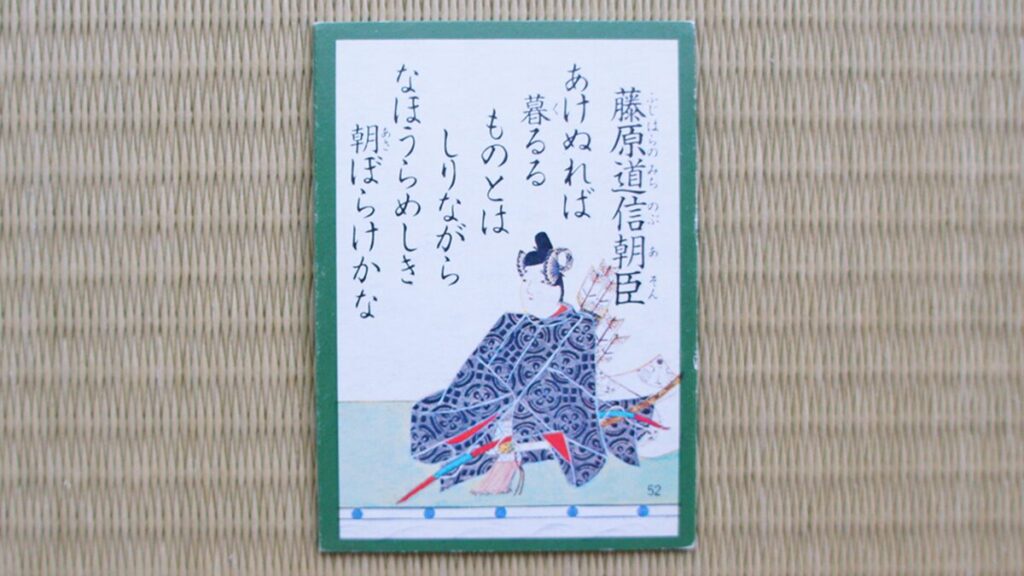 藤原道信朝臣
ふじはらの みち のぶ あ そん
あけぬれば
暮るる
く
ものとは
しりながら
なほうらめしき
朝ぼらけかな
あさ
52